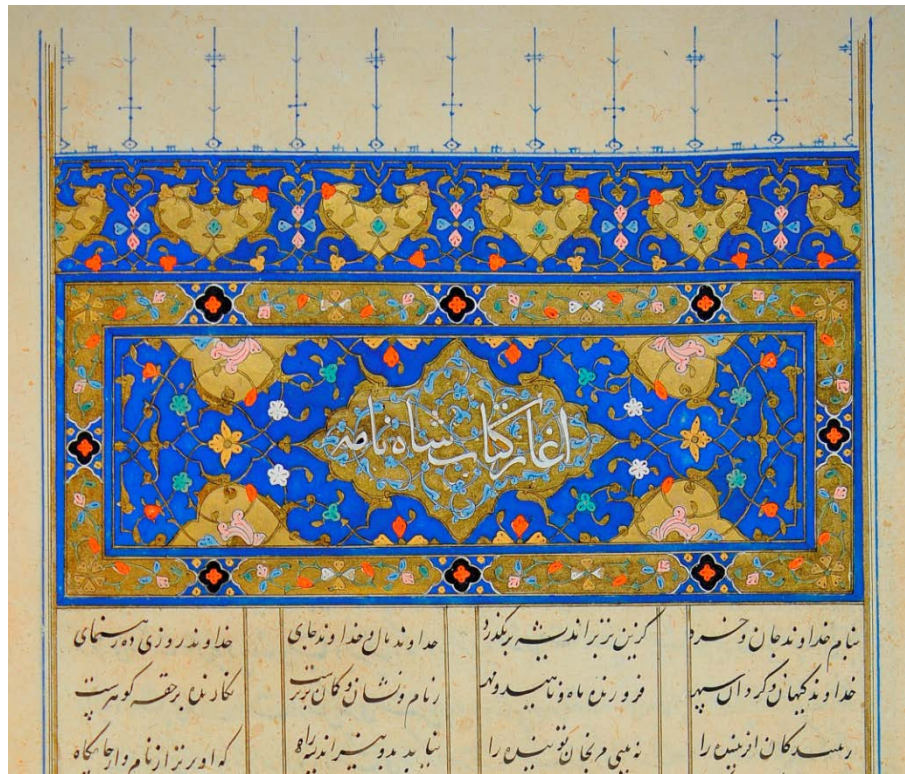 اغاز کتاب شاه نامه
بنام خداوند جان و خرد کزین برتر اندیشه برنگذرد خداوند نام و خداوند جای خداوند روزی ده رهنمای
خداوند کیهان و کردان سپهر فروزنده ماه و ناهید و مهر ز نام و نشان و کمان برترست نکارنده کوهرست
افریننده را نه بینی مرنجان تو بیننده را نیابد بدو نیز اندیشه راه که او برتر از نام و از جایکاه